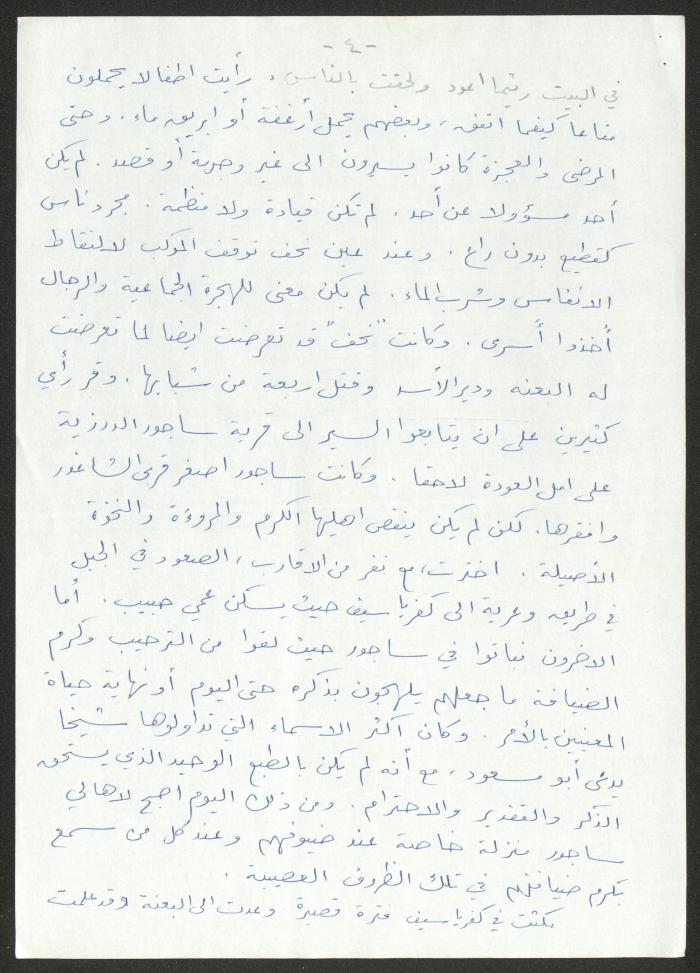 - ٤ -
في البيت ريثما اعود ولحقت بالناس. رأيت اطفالا يحملون
متاعا كيفما اتفق، وبعضهم يحمل أرغفة أو ابريق ماء. وحتى
المرضى والعجزة كانوا يسيرون الى غير وجهة أو قصد. لم يكن
أحد مسؤولا عن أحد. لم تكن قيادة ولا منظمة. مجرد ناس
كقطيع بدون راع. وعند عين نحف توقف الموكب لالتقاط
الانفاس وشرب الماء. لم يكن معنى للهجرة الجماعية والرجال
أُخذوا أسرى. وكانت "نحف" قد تعرضت ايضا لما تعرضت
له البعنه وديرالأسد وقتل اربعة من شبابها. وقر رأي
كثيرين على ان يتابعوا السير الى قرية ساجور الدرزية
على امل العودة لاحقا. وكانت ساجور اصغر قرى الشاغور
وافقرها. لكن لم يكن ينقص اهليها الكرم والمروءة والنخوة
الأصيلة. اخترت، مع نفر من الاقارب، الصعود في الجبل
في طريق وعرية الى كفرياسيف حيث يسكن عمي حبيب. أما
الاخرون فباتوا في ساجور حيث لقوا من الترحيب وكرم
الضيافة ما جعلهم يلهجون بذكره حتى اليوم أو نهاية حياة
المعنيين بالأمر. وكان أكثر الاسماء التي تداولوها شيخا
يدعى أبو مسعود، مع أنه لم يكن بالطبع الوحيد الذي يستحق
الذكر والتقدير والاحترام. ومن ذلك اليوم اصبح لاهالي
ساجور منزلة خاصة عند ضيوفهم وعند كل من سمع
بكرم ضيافتهم في تلك الظروف العصيبة.
مكثت في كفرياسيف فترة قصيرة وعدت الى البعنة وقد علمت